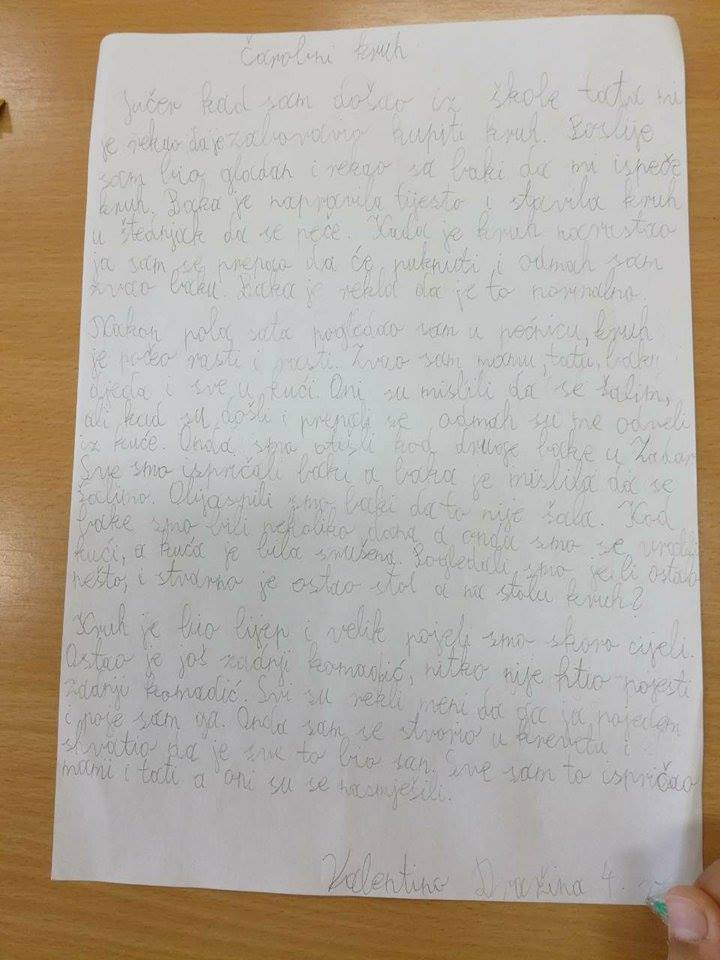 Čarobni kruh
Jučer kad sam došao iz škole tata mi
je rekao da je zaboravio kupiti kruh. Poslije
sam bio gladan i rekao sa baki da mi ispeče
kruh. Baka je napravila tijesto i stavila kruh
u štednjak da se peče. Kada je kruh narastao
ja sam se prepao da će puknuti i odmah sam
zvao baku. Baka je rekla da je to normalno.
Nakon pola sata pogledao sam u pećnicu, kruh
je počeo rasti i rasti. Zvao sam mamu, tatu, baku
djeda i sve u kući. Oni su mislili da se šalim,
ali kad su došli i prepali se odmah su me odveli
iz kuće. Onda smo otišli kod druge bake u Zadar
Sve smo ispričali baki a baka je mislila da se
šalimo. Objasnili smo baki da to nije šala. Kod
bake smo bili nekoliko dana a onda smo se vratili
kući, a kuća je bila srušena. Pogledali smo je li ostalo
nešto, i stvarno je ostao stol a na stolu kruh?
Kruh je bio lijep i velik pojeli smo skoro cijeli.
Ostao je još zadnji komadić, nitko nije htio pojesti
zdanji komadić. Svi su rekli meni da ga ja pojedem
i poje sam ga. Onda sam se stvorio u krevetu i
shvatio da je sve to bio san. Sve sam to ispričao
mami i tati a oni su se nasmješili.
Valentino Dražina 4.